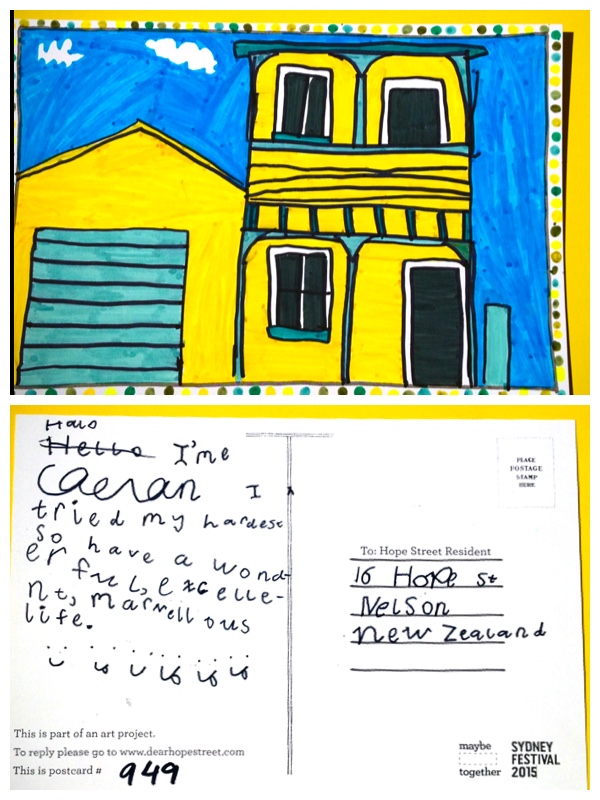 Halo
Hello I'me
Caeran I
tried my hardest
so have a wond-
erful, excelle-
nt, marvellous
life.
This is part of an art project.
To reply please go to www.dearhopestreet.com
This is postcard # 949
PLACE
POSTAGE
STAMP
HERE
To: Hope Street Resident
16 Hope St
Nelson
New Zealand
maybe
together
SYDNEY
FESTIVAL
2015